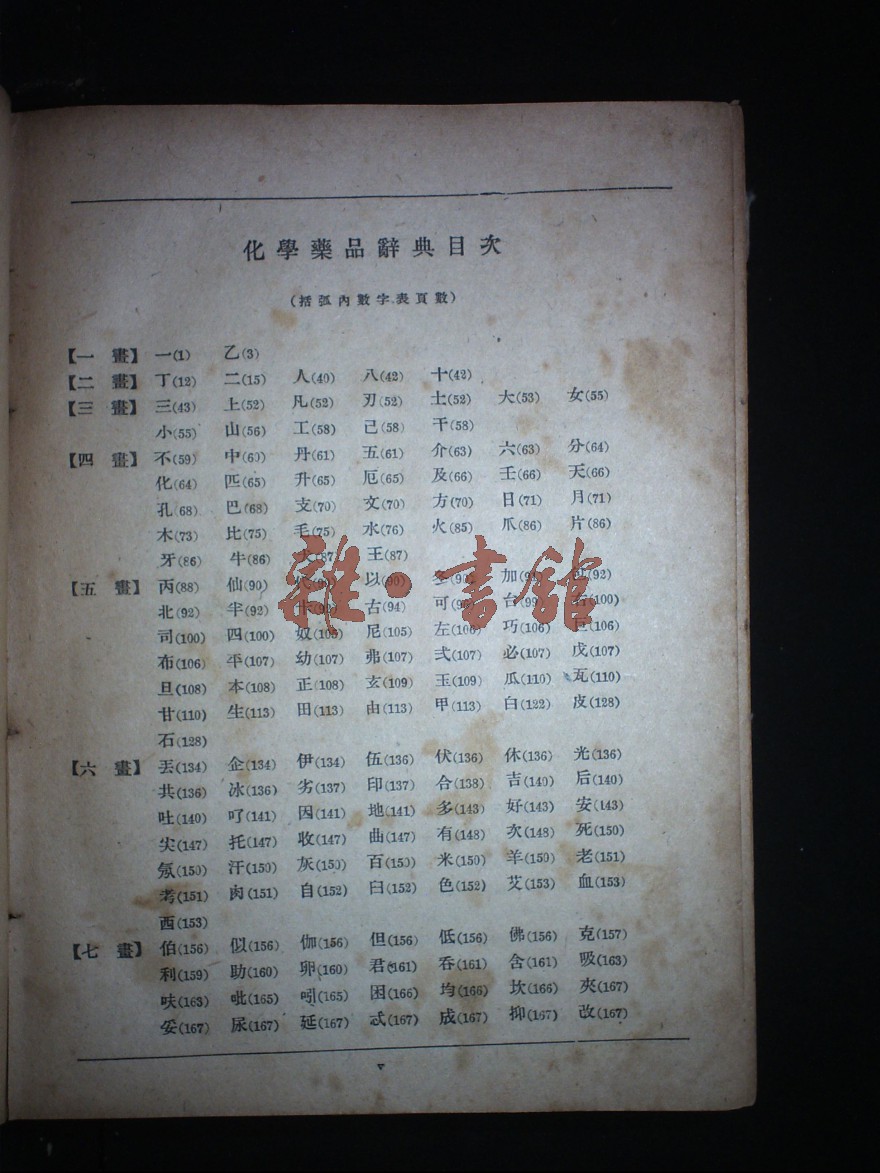 化學藥品辭典目次
(括弧內數字表頁數)
【一 畫】 一(1) 乙(3)
【二 畫】 丁(12) 二(15) 人(40) 八(42) 十(42)
【三 畫】 三(43) 上(52) 凡(52) 刃(52) 土(52) 大(53) 女(55)
小(55) 山(56) 工(58) 己(58) 干(58)
【四 畫】 不(59) 中(60) 丹(61) 五(61) 介(63) 六(63) 分(64)
化(64) 匹(65) 升(65) 厄(65) 及(66) 壬(66) 天(66)
孔(68) 巴(68) 支(70) 文(70) 方(70) 日(71) 月(71)
木(73) 比(75) 毛(75) 水(76) 火(85) 爪(86) 片(86)
牙(86) 牛(86) (87) 王(87)
【五 畫】 丙(88) 仙(90) 以(90) 加 (92)
北(92) 半(92) 古(94) 可 台(99) (100)
司(100) 四(100) 奴(105) 尼(105) 左(106) 巧(106) (106)
布(106) 平(107) 幼(107) 弗(107) 弍(107) 必(107) 戊(107)
旦(108) 本(108) 正(108) 玄(109) 玉(109) 瓜(110) 瓦(110)
甘(110) 生(113) 田(113) 由(113) 甲(113) 白(122) 皮(128)
石(128)
【六 畫】 丟(134) 企(134) 伊(134) 伍(136) 伏(136) 休(136) 光(136)
共(136) 冰(136) 劣(137) 印(137) 合(138) 吉(140) 后(140)
吐(140) 叮(141) 因(141) 地(141) 多(143) 好(143) 安(143)
尖(147) 托(147) 收(147) 曲(147) 有(148) 次(148) 死(150)
氖(150) 汗(150) 灰(150) 百(150) 米(150) 羊(150) 老(151)
考(151) 肉(151) 自(152) 臼(152) 色(152) 艾(153) 血(153)
西(153)
【七 畫】 伯(156) 似(156) 伽(156) 但(156) 低(156) 佛(156) 克(157)
利(159) 助(160) 卵(160) 君(161) 吞(161) 含(161) 吸(163)
呋(163) 吡(165) 吲(165) 困(166) 均(166) 坎(166) 夾(167)
妥(167) 尿(167) 延(167) 忒(167) 成(167) 抑(167) 改(167)
雜·書館
v